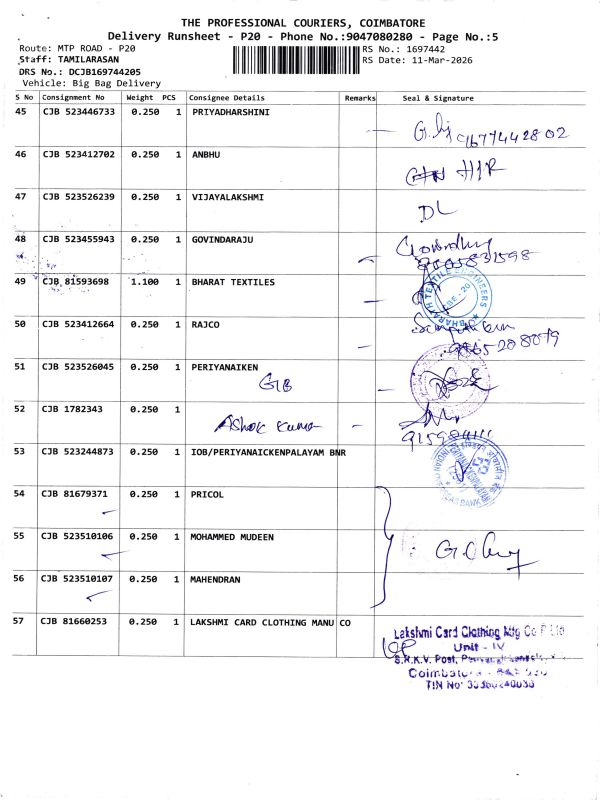 THE PROFESSIONAL COURIERS, COIMBATORE
Delivery Runsheet - P20 - Phone No.:9047080280 - Page No.:5
Route: MTP ROAD - P20
RS No.: 1697442
Staff: TAMILARASAN
RS Date: 11-Mar-2026
DRS No.: DCJB169744205
Vehicle: Big Bag Delivery
S No Consignment No Weight PCS Consignee Details Remarks Seal & Signature
45 CJB 523446733 0.250 1 PRIYADHARSHINI
9677442802
46 CJB 523412702 0.250 1 ANBHU
47 CJB 523526239 0.250 1 VIJAYALAKSHMI
DL
48 CJB 523455943 0.250 1 GOVINDARAJU
49 CJB 81593698 1.100 1 BHARAT TEXTILES
BHARATH TEXTILE ENGINEERS
50 CJB 523412664 0.250 1 RAJCO
51 CJB 523526045 0.250 1 PERIYANAIKEN
52 CJB 1782343 0.250 1
Ashok Kumar
53 CJB 523244873 0.250 1 IOB/PERIYANAICKENPALAYAM BNR
54 CJB 81679371 0.250 1 PRICOL
55 CJB 523510106 0.250 1 MOHAMMED MUDEEN
56 CJB 523510107 0.250 1 MAHENDRAN
57 CJB 81660253 0.250 1 LAKSHMI CARD CLOTHING MANU CO
Lakshmi Card Clothing Mfg Co P Ltd
Unit - IV
S.R.K.V. Post,
Coimbatore
TIN No